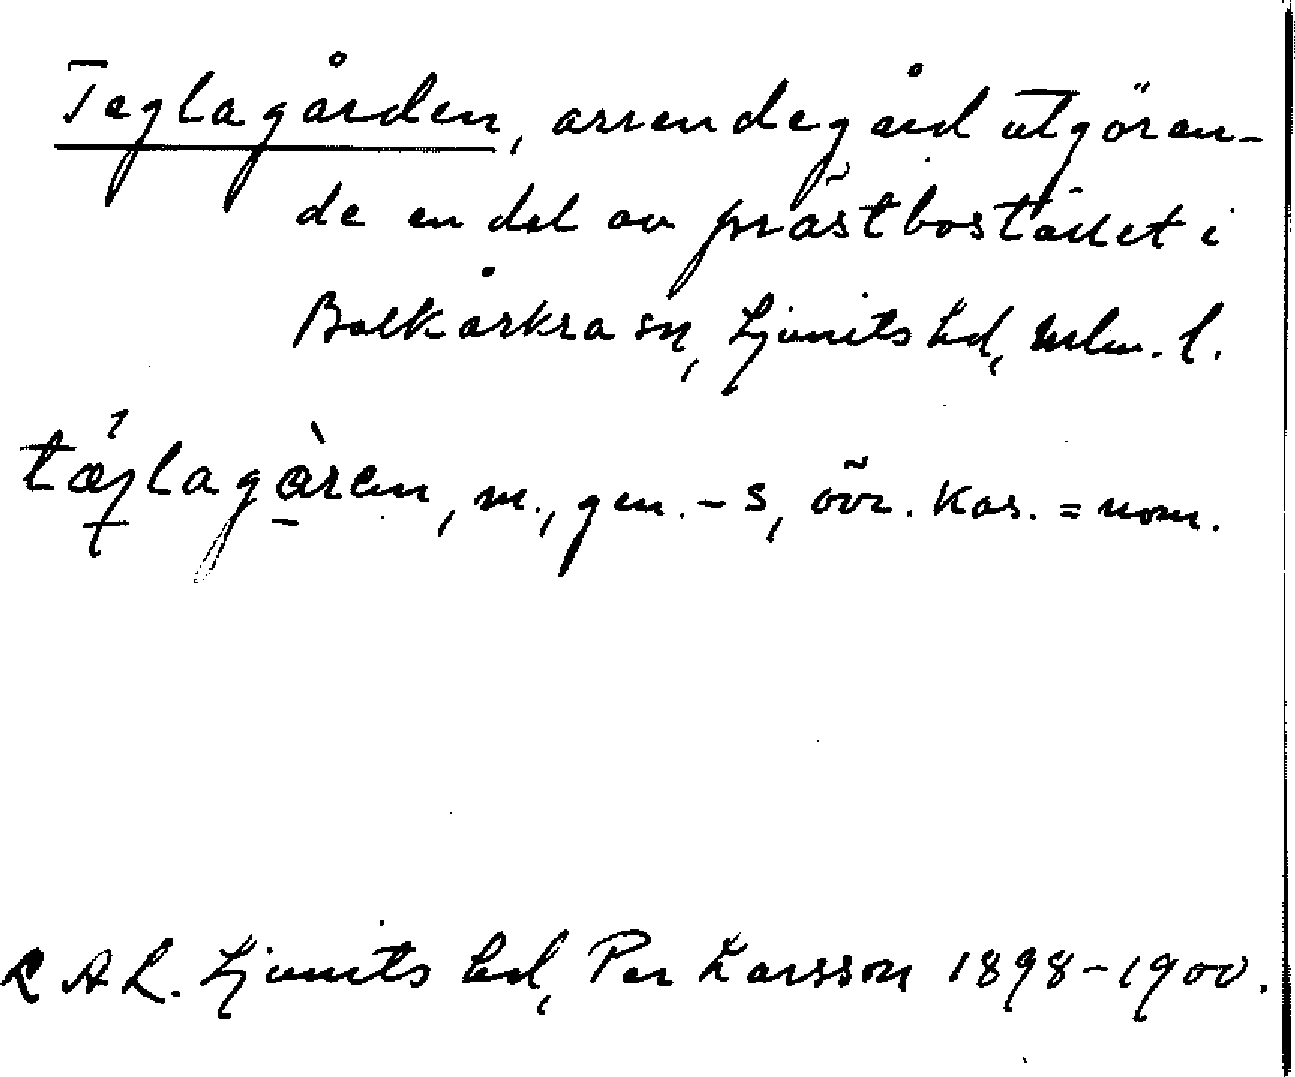 Teglagården, arrendegård utgöran-
de en del av prästbostället i
Balkåkra sn, Ljunits hd, Mlm. l.
tæjlagåren, m., gen. -s, övr. kas. = nom.
L A L. Ljunits hd, Per Larsson 1898-1900.